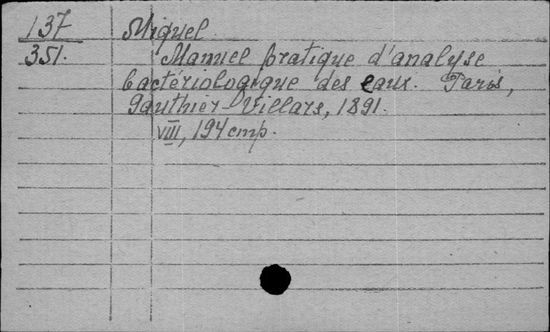 137 Miquel.
351. Manuel pratique d'analyse
bactériologique des eaux. Paris,
Gauthier Villars, 1891.
VIII, 194 стр.